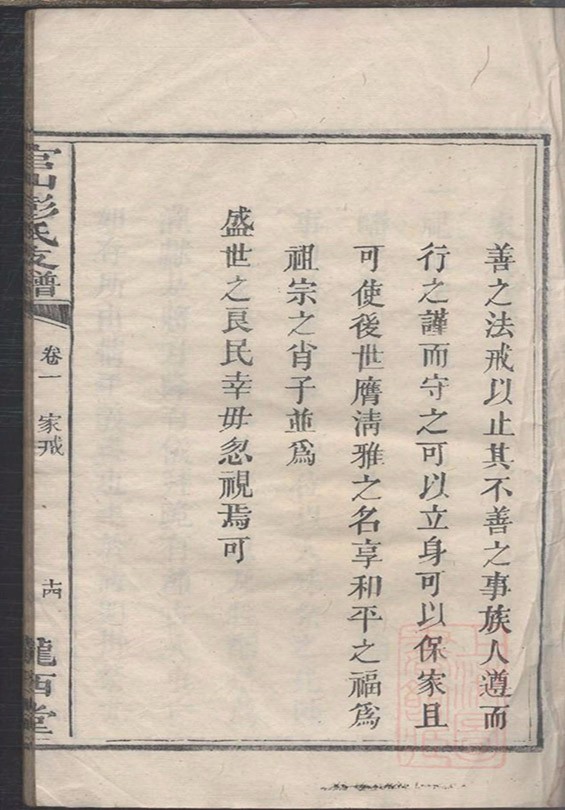 善之法戒以止其不善之事族人遵而
行之謹而守之可以立身可以保家且
可使後世膺淸雅之名享和平之福爲
祖宗之肖子並爲
盛世之良民幸毋忽視焉可
官山彭氏支譜
卷一
家戒
十四
隴西堂